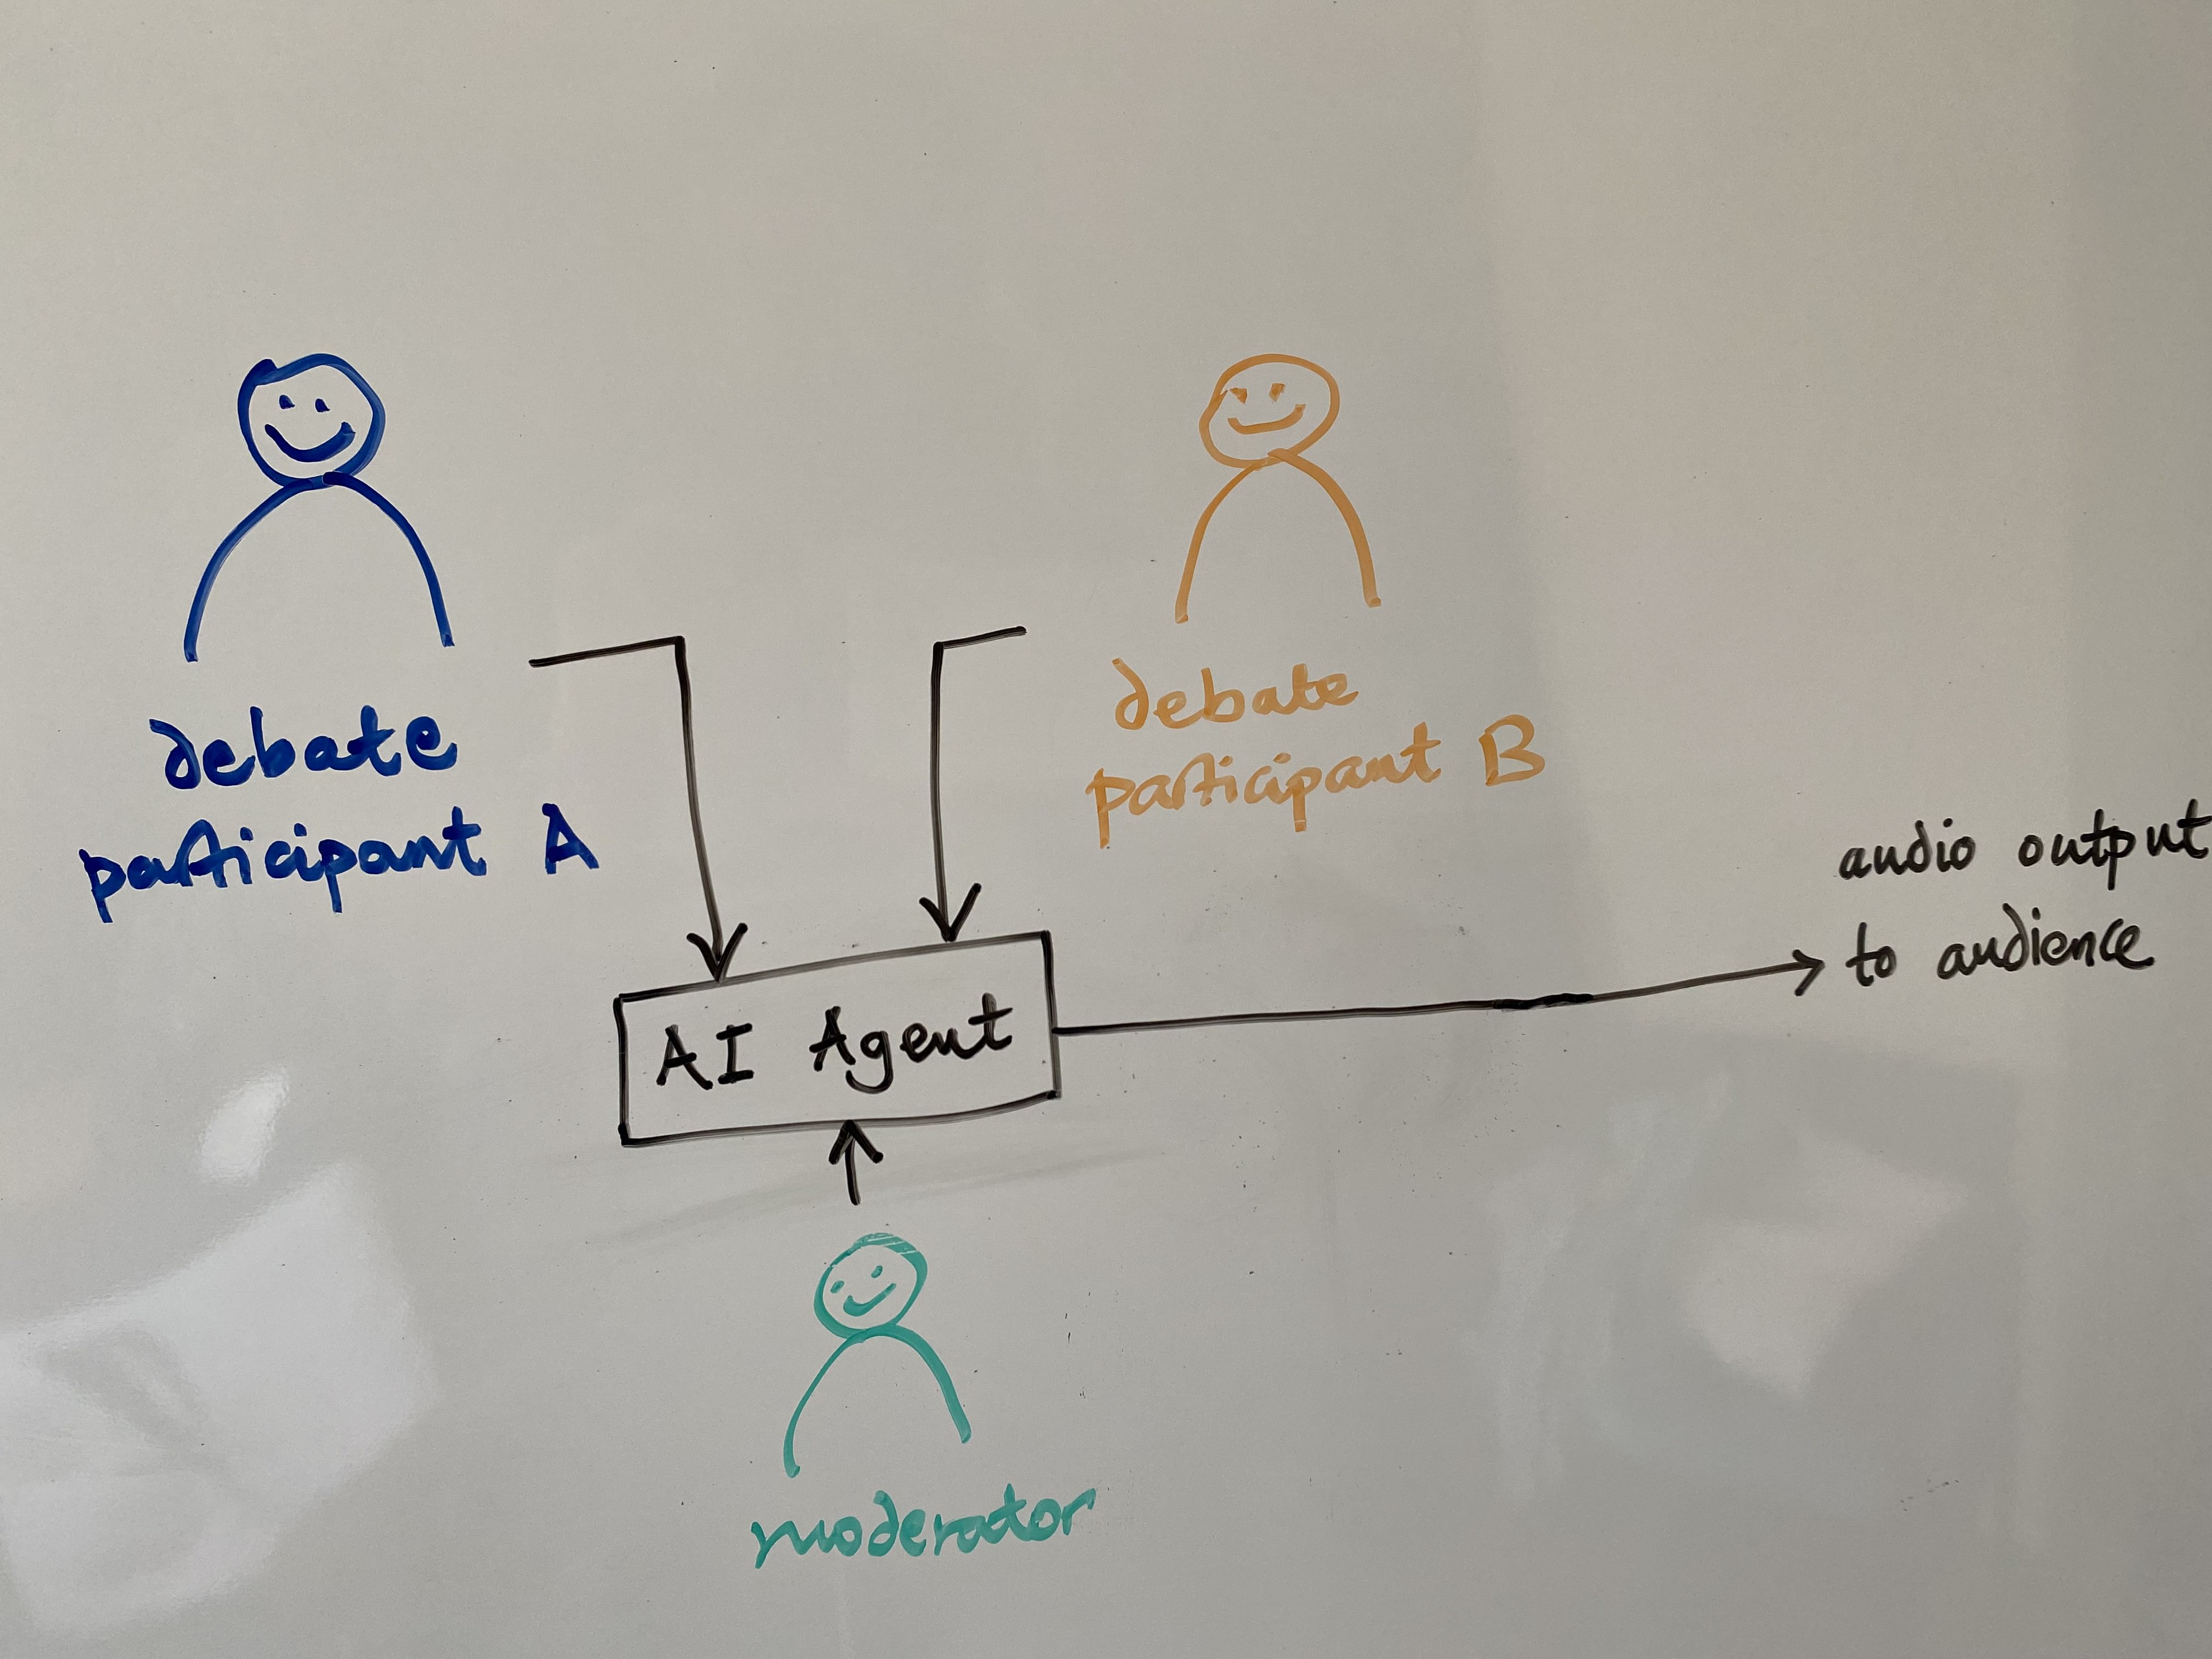 debate
participant A
debate
participant B
audio output
to audience
AI Agent
moderator